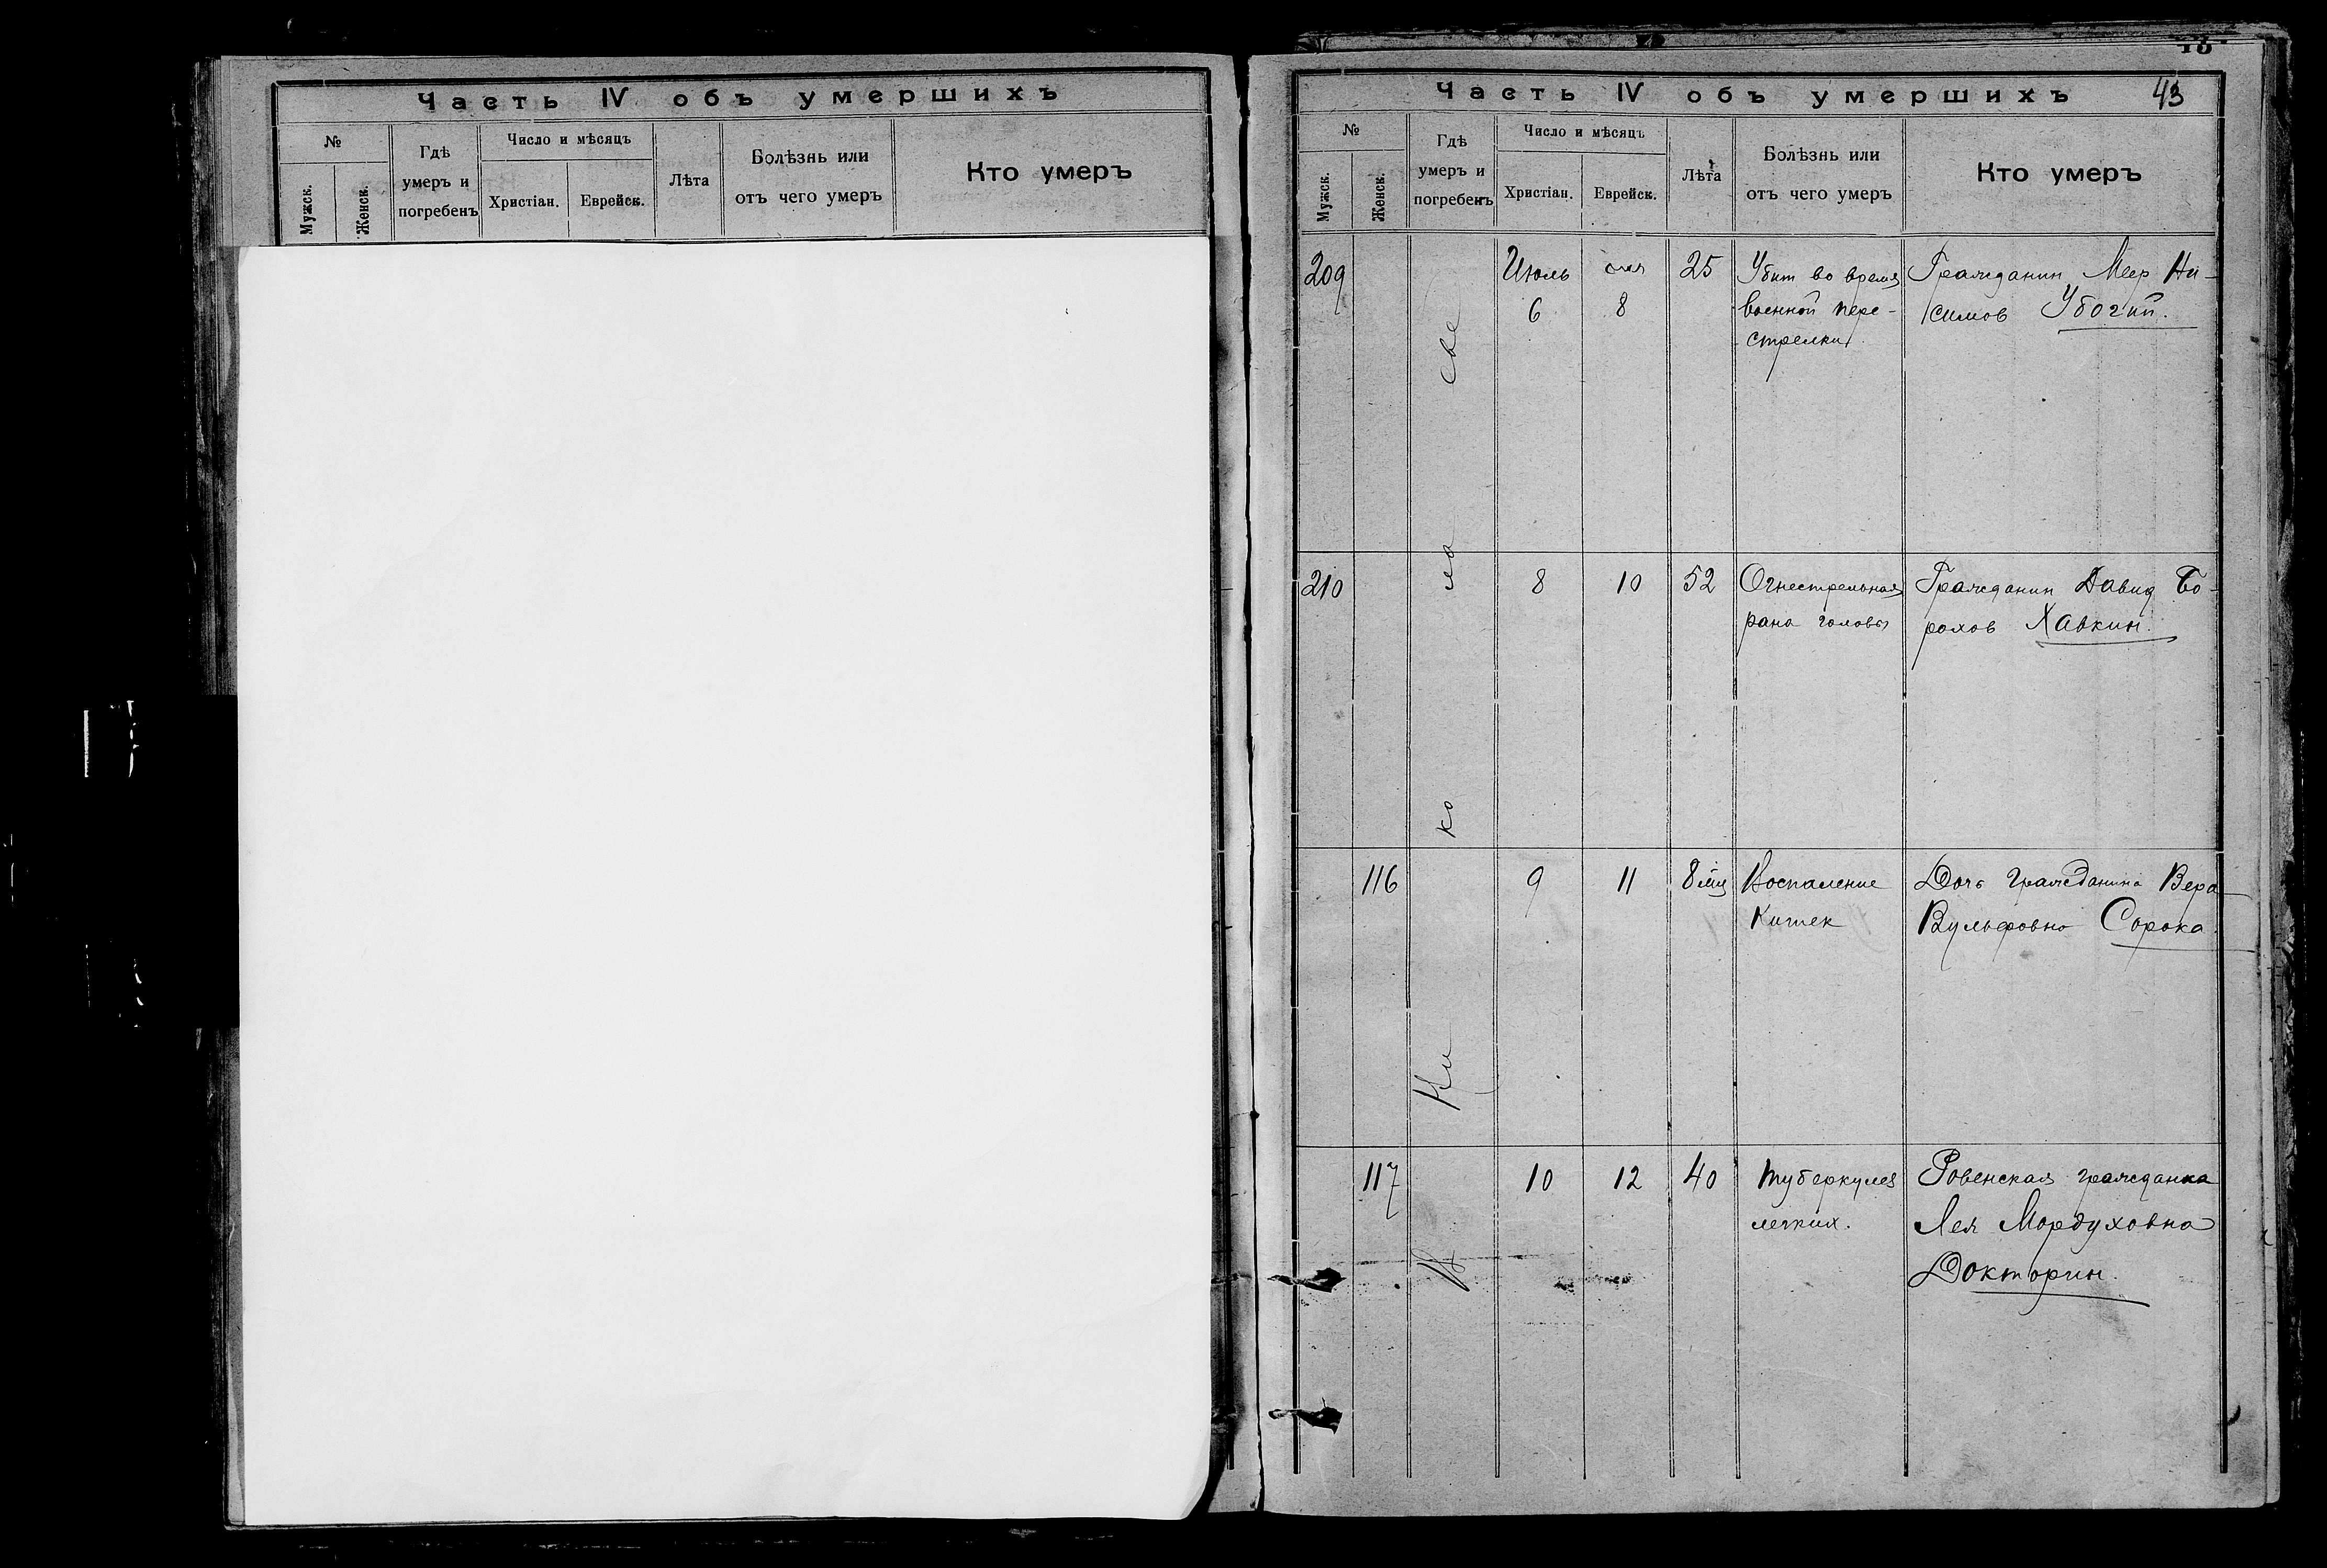 Часть IV объ умершихъ
№
Мужск.
Женск.
Гдѣ
умеръ и
погребенъ
Число и мѣсяцъ
Христіан.
Еврейск.
Лѣта
Болѣзнь или
отъ чего умеръ
Кто умеръ
Часть IV объ умершихъ
43
№
Мужск.
Женск.
Гдѣ
умеръ и
погребенъ
Число и мѣсяцъ
Христіан.
Еврейск.
Лѣта
Болѣзнь или
отъ чего умеръ
Кто умеръ
В Ни ко ла еве
209
Июль
6
8
25
Убит во время
военной пере-
стрелки.
Гражданин Меер Ни-
симов Убогий.
210
8
10
52
Огнестрельная
рана головы
Гражданин Давид Бо-
рохов Хавкин.
116
9
11
8 м/ц
Воспаление
Кишек
Дочь гражданина Вера
Вульфовна Сорока.
117
10
12
40
Туберкулез
легких.
Ровенская гражданка
Лея Мордуховна
Докторин.